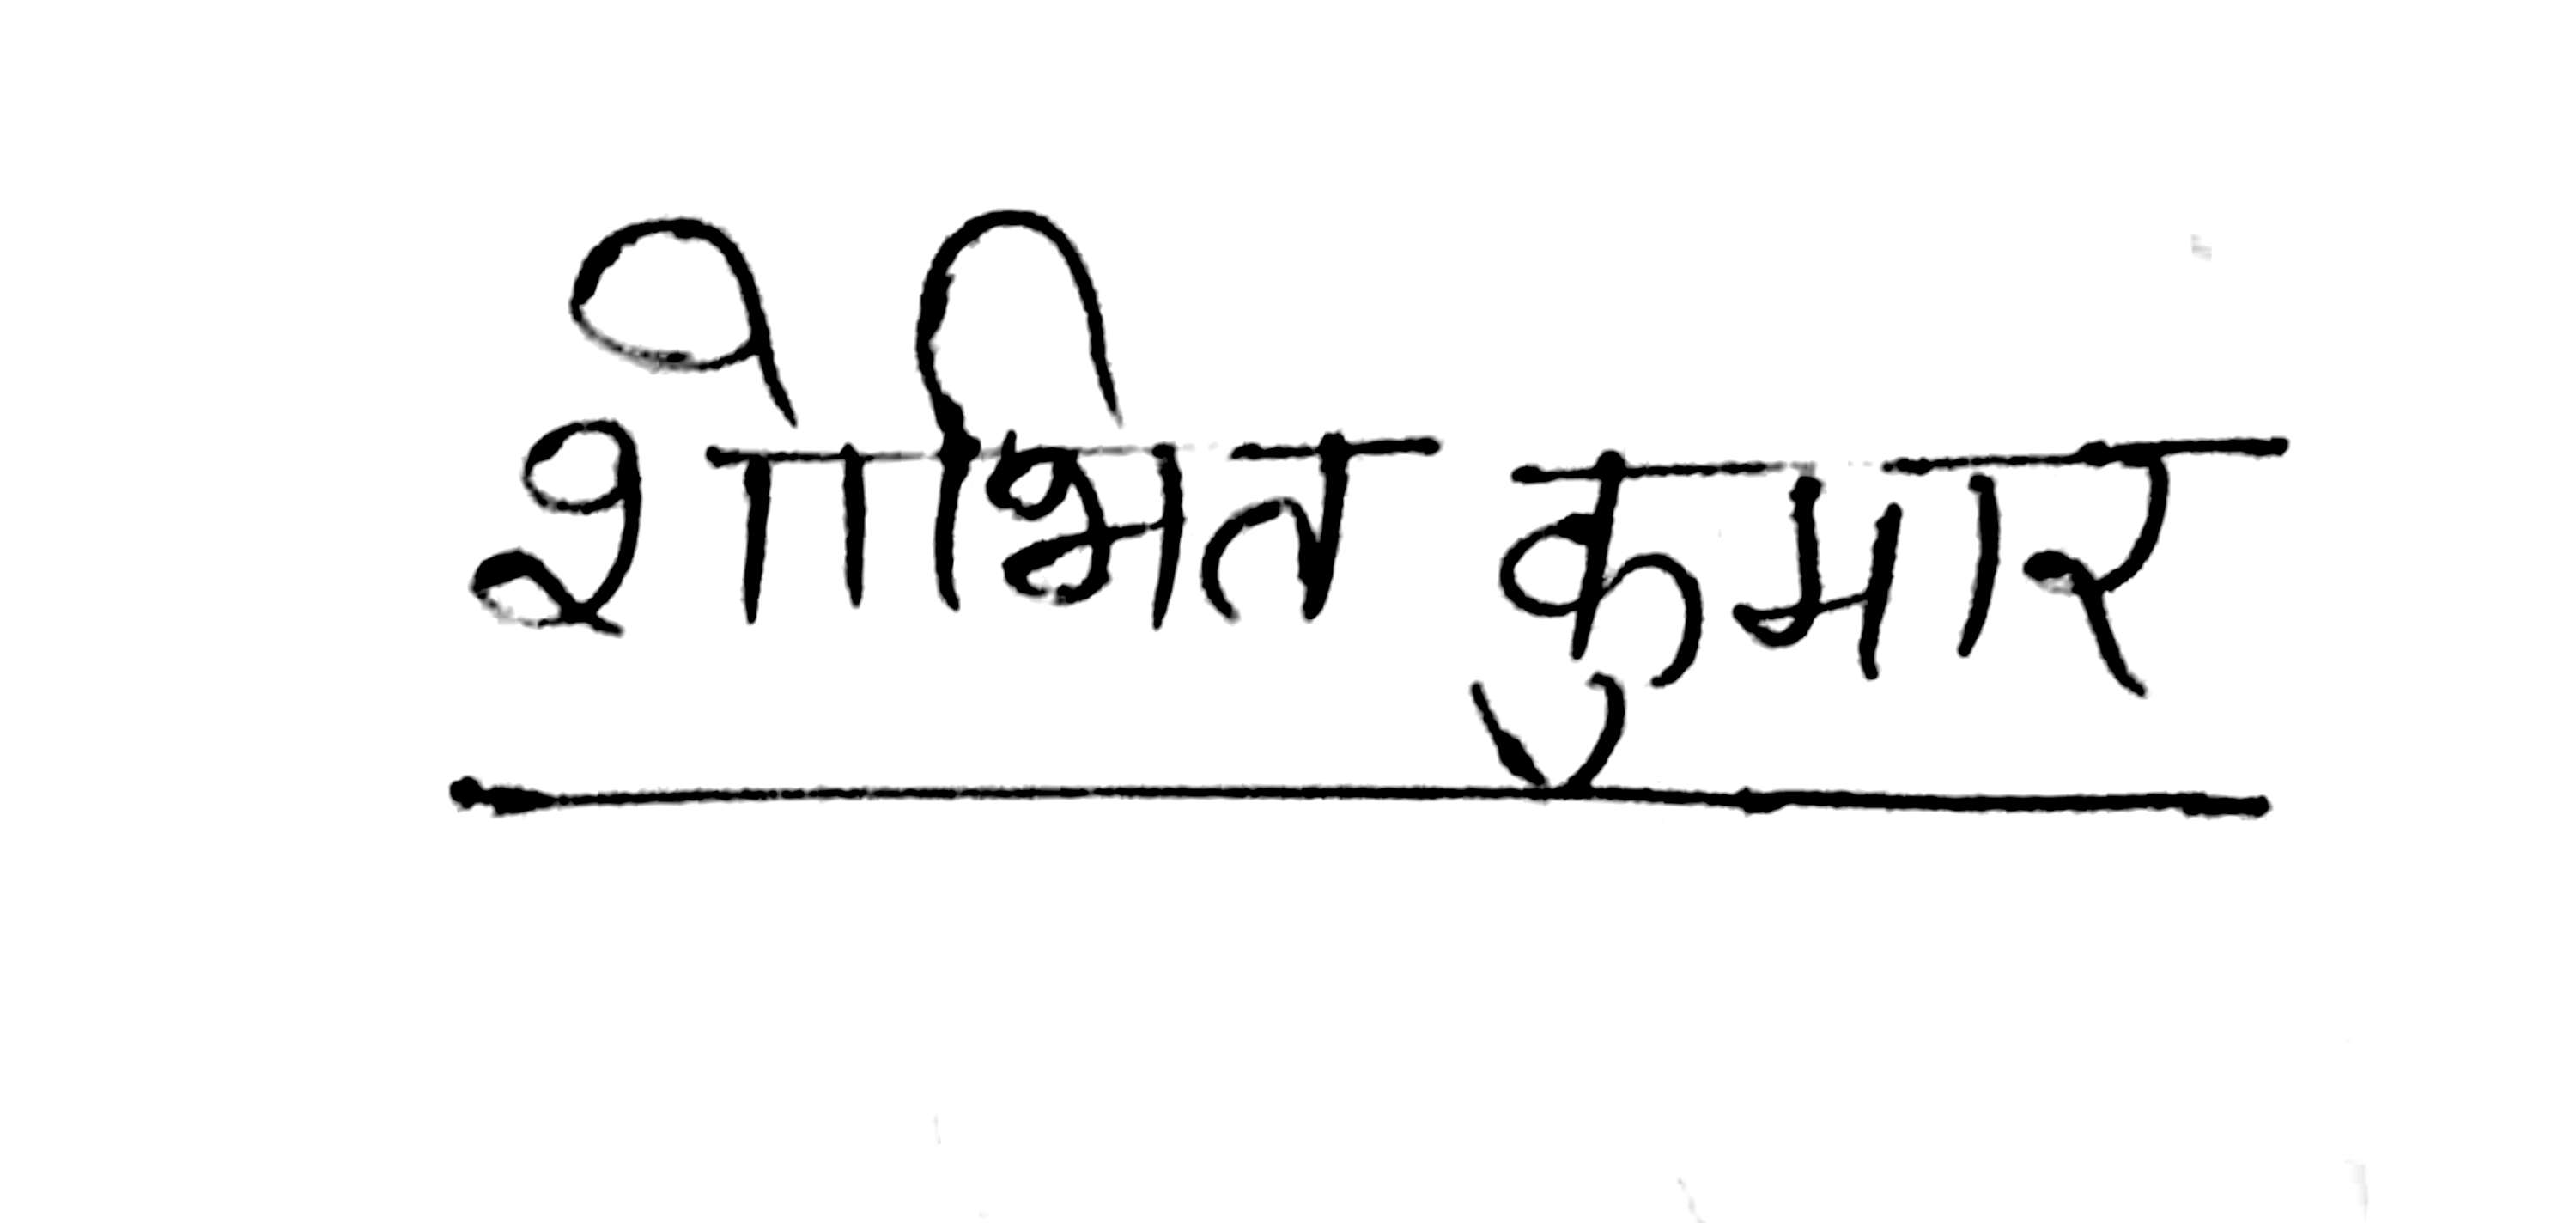 शोभित कुमार